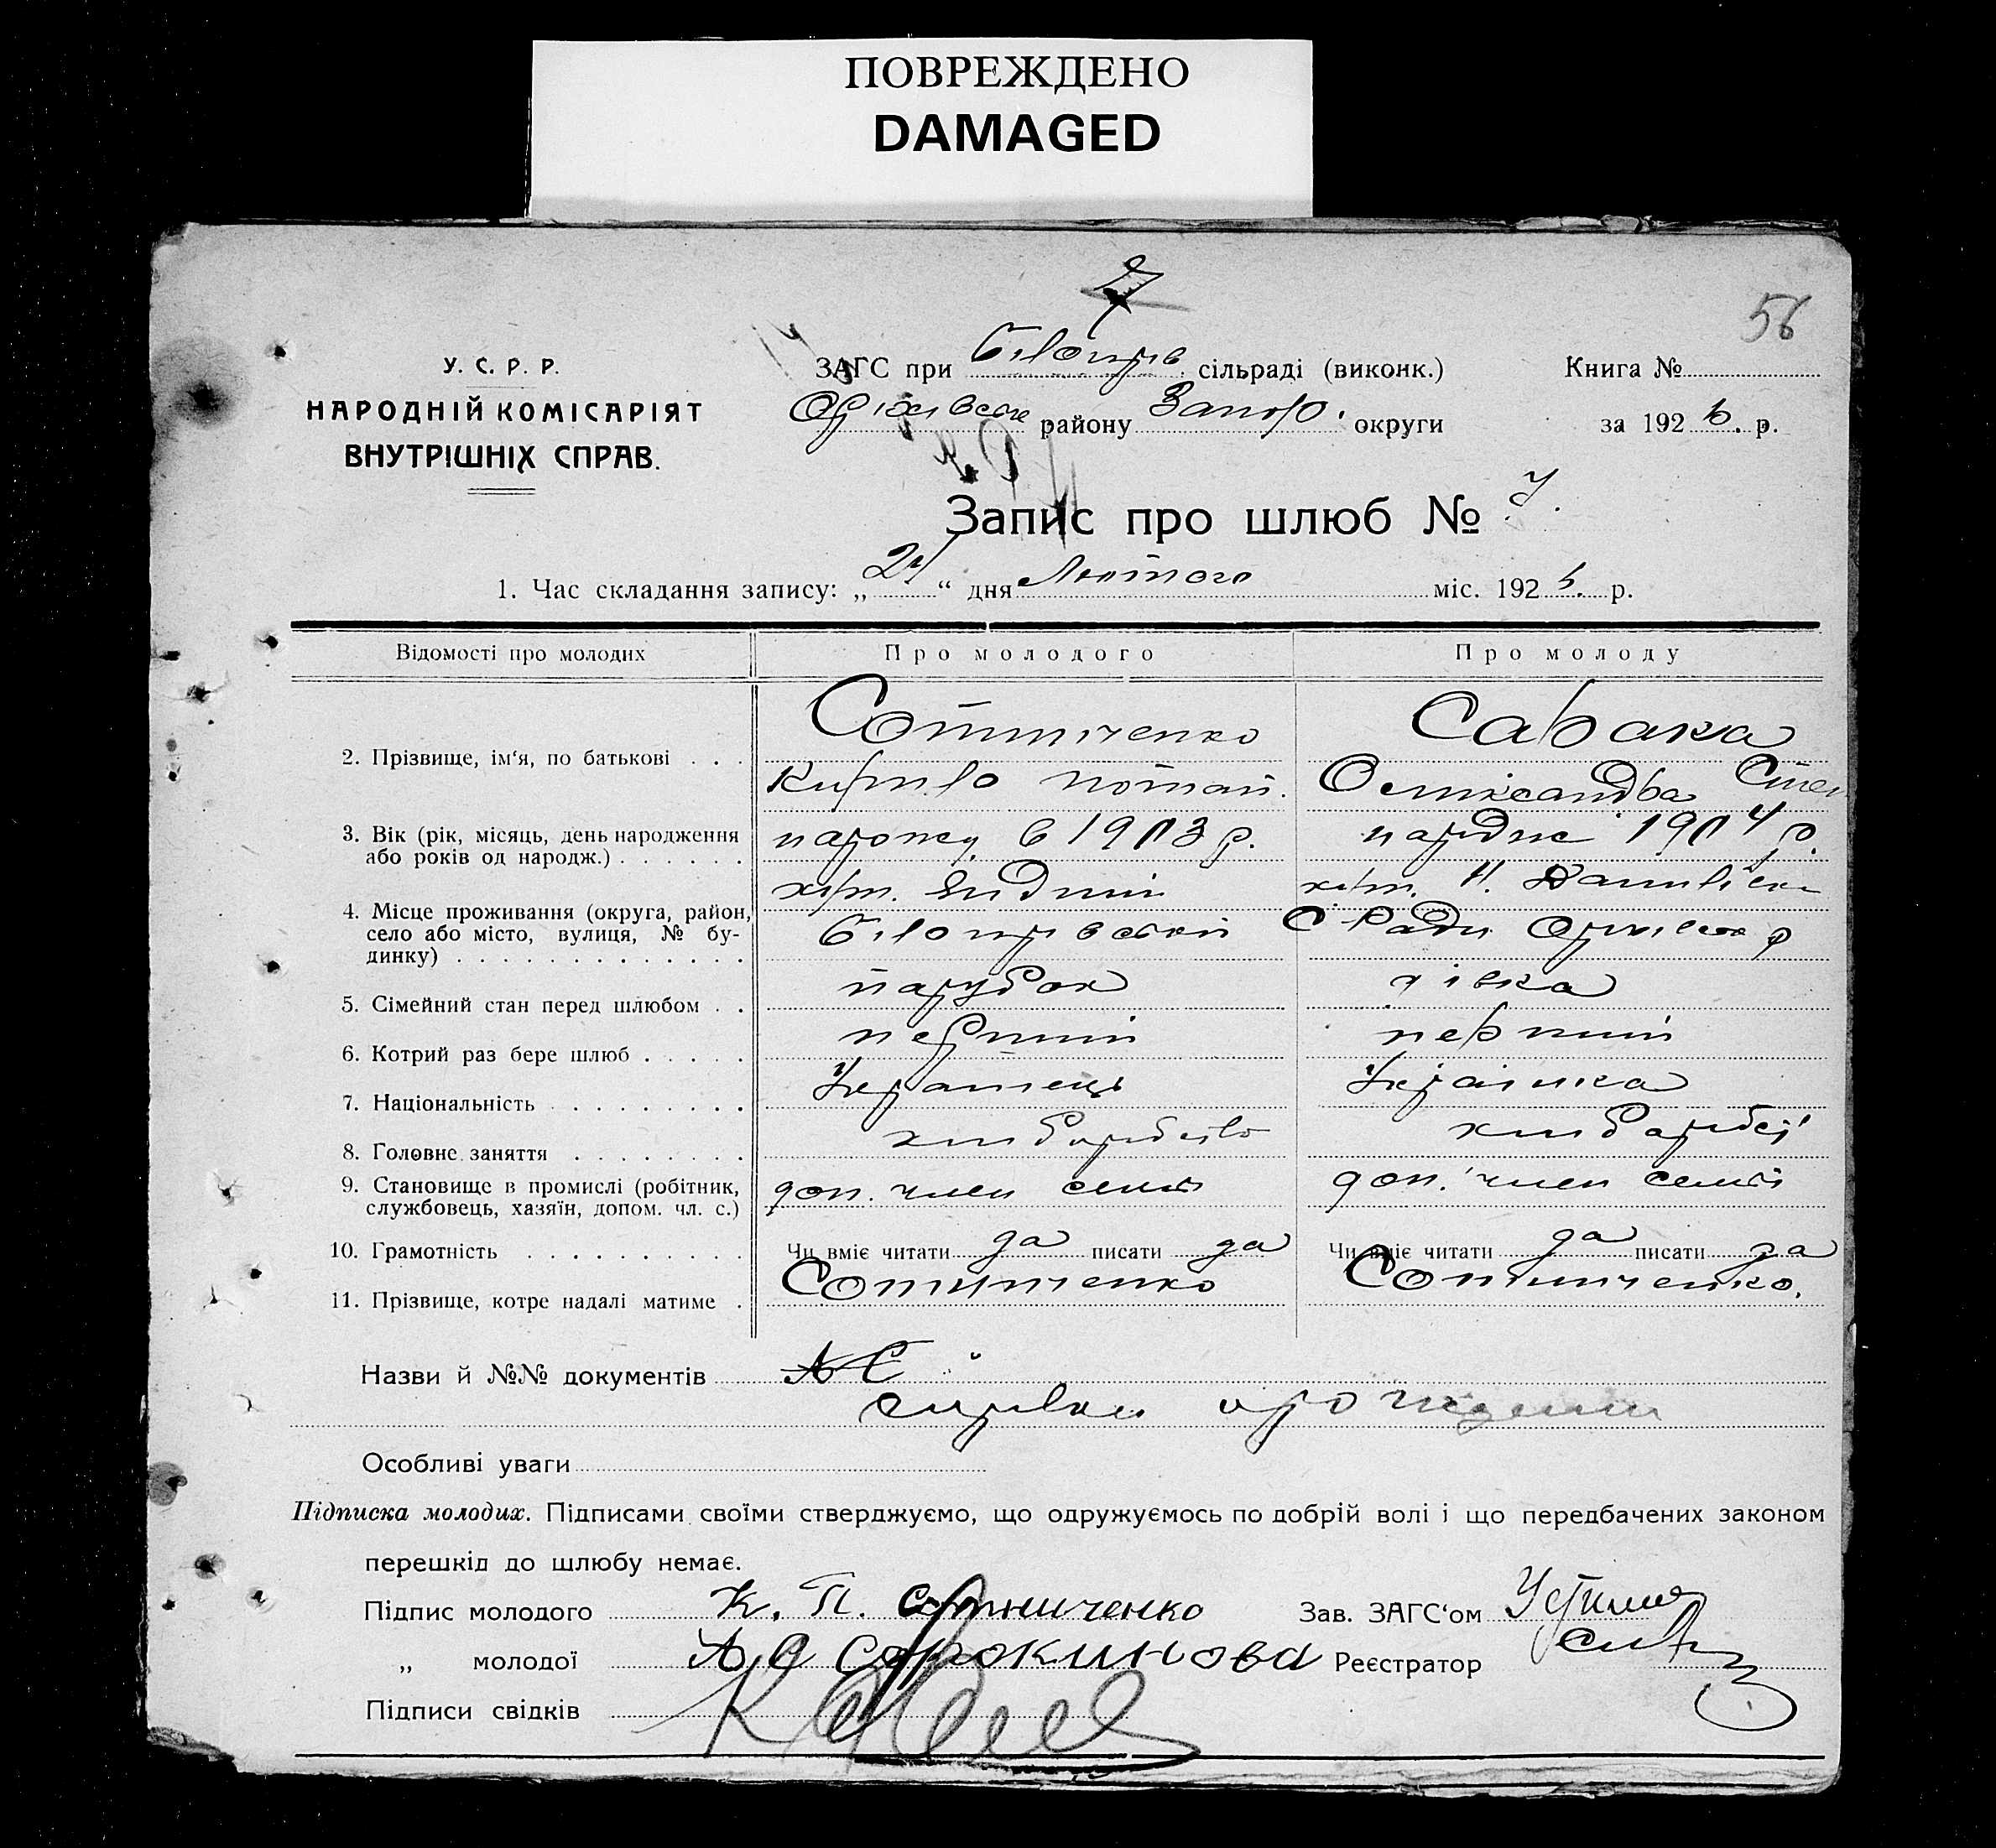 ПОВРЕЖДЕНО
DAMAGED
7
56
У. С. Р. Р.
НАРОДНІЙ КОМІСАРІЯТ
ВНУТРІШНІХ СПРАВ.
ЗАГС при сільраді (виконк.)
Книга №
району Запор. округи
за 192 р.
Запис про шлюб № 7.
1. Час складання запису: „ “ дня Лютого міс. 192 р.
Відомості про молодих
Про молодого
Про молоду
2. Прізвище, ім‘я, по батькові . . .
Сотниченко
Кирило Потап.
Олександра Степ
3. Вік (рік, місяць, день народження або років од народж.) . . . . . .
народж. в 1903 р.
народж 1904 р.
4. Місце проживання (округа, район, село або місто, вулиця, № бу-динку) . . . . . . . . . . . . .
хут.
хут. Н.
С Ради р
5. Сімейний стан перед шлюбом . .
парубок
дівка
6. Котрий раз бере шлюб . . . . .
перший
перший
7. Національність . . . . . . . .
Українець
Українка
8. Головне заняття . . . . . . . .
хліборобство
хлібороб
9. Становище в промислі (робітник, службовець, хазяїн, допом. чл. с.)
доп. член семьї
доп. член семьї
10. Грамотність . . . . . . . . . .
Чи вміє читати да писати да
Чи вміє читати да писати да
11. Прізвище, котре надалі матиме .
Сотниченко
Сотниченко.
Назви й №№ документів
справки про
Особливі уваги
Підписка молодих. Підписами своїми стверджуємо, що одружуємось по добрій волі і що передбачених законом
перешкід до шлюбу немає.
Підпис молодого К. П. Сотниченко Зав. ЗАГС‘ом
„ молодої Реєстратор
Підписи свідків